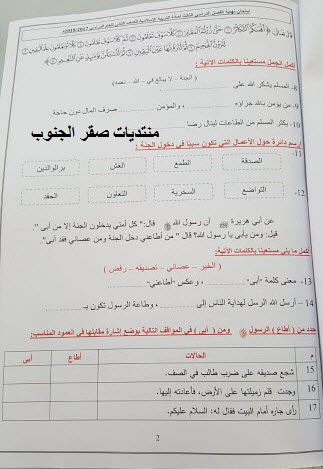 امتحان نهاية الفصل الدراسي الثالث لمادة التربية الإسلامية للصف الثاني للعام الدراسي 2017/2018م
أكمل الجمل مستعينا بالكلمات الآتية :
( الجنة – لا يبالغ في – الله – نعمه)
8. المسلم يشكر الله على
9. من يؤمن بالله جزاؤه والمؤمن صرف المال دون حاجة
10. يكثر المسلم من الطاعات لينال رضا
منتديات صقر الجنوب
ارسم دائرة حول الأعمال التي تكون سببا في دخول الجنة :
11- الصدقة الطمع الغش بر الوالدين
12- التواضع السخرية التعاون الحقد
عن أبي هريرة ﷺ أن رسول الله ﷺ قال: " كل أمتي يدخلون الجنة إلا من أبى "
قيل: ومن يأبى يا رسول الله؟ قال " من أطاعني دخل الجنة ومن عصاني فقد أبى".
أكمل ما يلي مستعينا بالكلمات الآتية:
( الخير – عصاني – تصديقه – رفض )
13- معنى كلمة "أبى" ، وعكس "أطاعني"
14- أرسل الله الرسل لهداية الناس إلى ، وطاعة الرسول تكون بـ
حدد من ( أطاع ) الرسول ﷺ ومن ( أبى ) في المواقف التالية بوضع إشارة مقابلها في العمود المناسب:
م الحالات أطاع أبى
15 شجع صديقه على ضرب طالب في الصف.
16 وجدت قلم زميلتها على الأرض، فأعادته إليها.
17 رأى جاره أمام البيت فقال له: السلام عليكم.
2